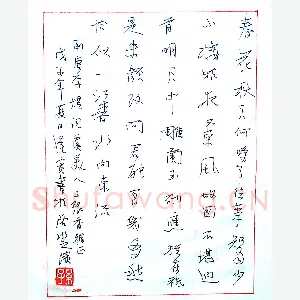 春花秋月何時了往事知多少
小樓昨夜又東風故國不堪迴
首明月中雕闌玉砌應猶在祇
是朱顏改問君能有幾多愁
恰似一江春水向東流
南唐李煜詞虞美人 雅正
戊子年夏日
Shufawang.CN